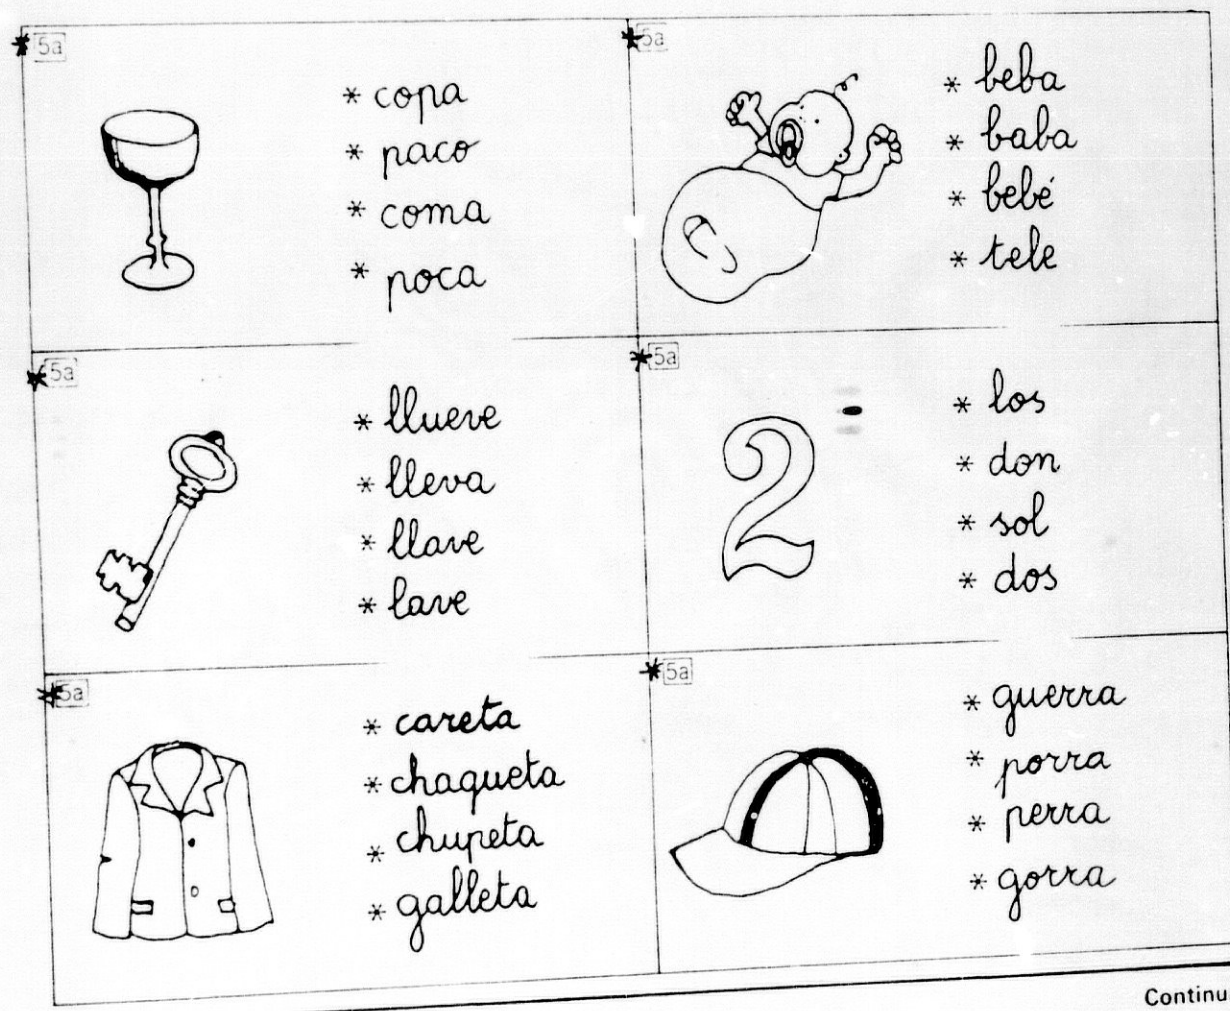 5a
* copa
* paco
* coma
* poca
5a
* beba
* baba
* bebé
* tele
5a
* llueve
* lleva
* llave
* lave
5a
2
* los
* don
* sol
* dos
5a
* careta
* chaqueta
* chupeta
* galleta
5a
* guerra
* porra
* perra
* gorra
Continu